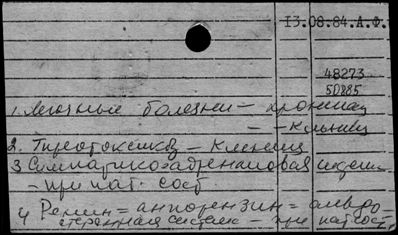 13.08.84.А.Ф.
48273
50885
1. Легочные болезни –
– – Клиниц
2. Тиреотоксикоз – Клиниц
3 Симпатико-адреналовая
– при пат. сост
4 Ренин = ангиотензин = альдо
стероновая система – при пат. сост.